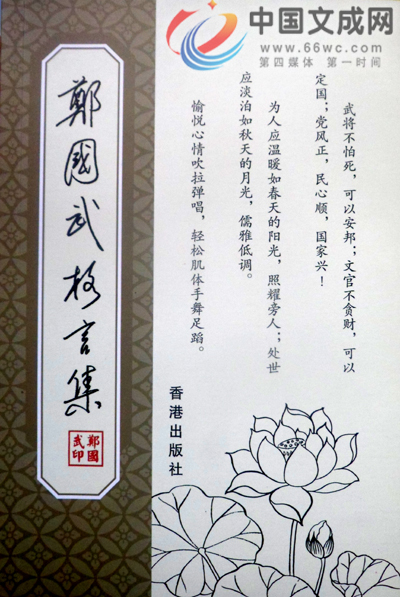 中国文成网
www.66wc.com
第四媒体 第一时间
鄭國武格言集
鄭國武印
武将不怕死，可以安邦；文官不贪财，可以
定国；党风正，民心顺，国家兴！
为人应温暖如春天的阳光，照耀旁人；处世
应淡泊如秋天的月光，儒雅低调。
愉悦心情吹拉弹唱，轻松肌体手舞足蹈。
香港出版社